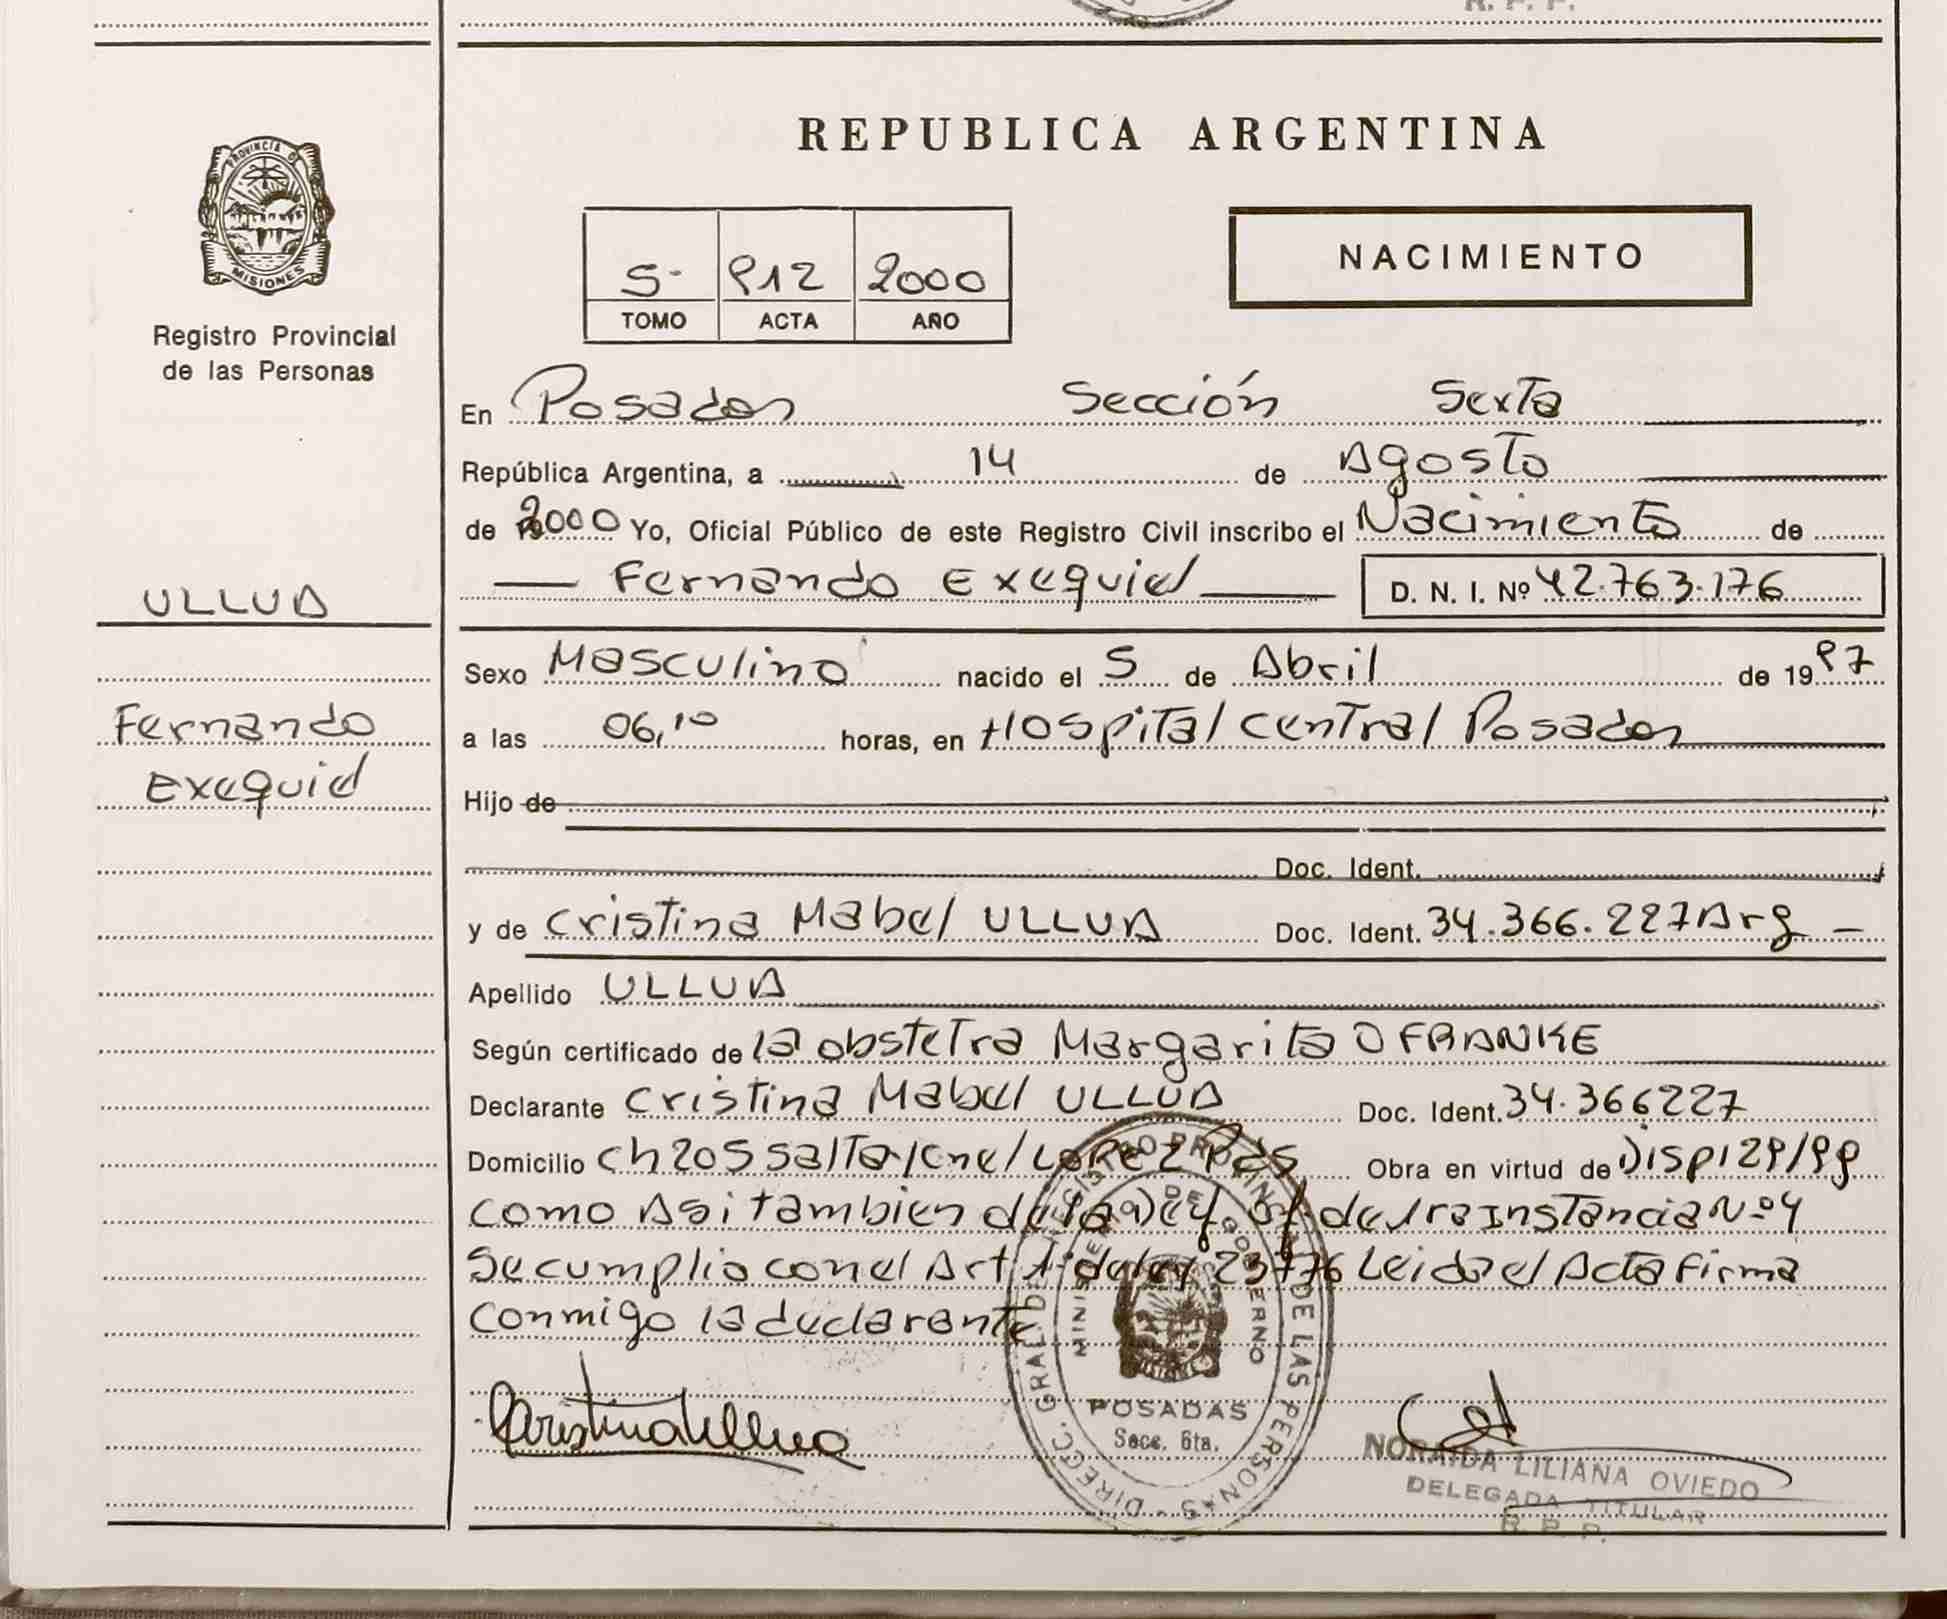 R. P. P.
PROVINCIA DE
MISIONES
Registro Provincial
de las Personas
REPUBLICA ARGENTINA
NACIMIENTO
5- 912 2000
TOMO ACTA AÑO
En Posadas Sección Sexta
República Argentina, a 14 de Agosto
de 2000 Yo, Oficial Público de este Registro Civil inscribo el Nacimiento de
Fernando Exequiel D. N. I. Nº 42.763.176
ULLUA
Sexo Masculino nacido el 5 de Abril de 1997
Fernando
Exequiel
a las 06,10 horas, en Hospital Central Posadas
Hijo de
Doc. Ident.
y de Cristina Mabel ULLUA Doc. Ident. 34.366.227 Arg
Apellido ULLUA
Según certificado de la obstetra Margarita O FRANKE
Declarante Cristina Mabel ULLUA Doc. Ident. 34.366227
Domicilio ch 205 salta/Cnel LOPEZ Pdas Obra en virtud de Disp 129/99
como Asi tambien de la Def. Of. de 1ra Instancia Nº 4
Se cumplio con el Art 1º de ley 23776 Leida el Acta Firma
conmigo la declarante
DIRECC. GRAL. DEL REGISTRO PROVINCIAL DE LAS PERSONAS
MINISTERIO DE GOBIERNO
POSADAS
Secc. 6ta.
Cristina Ullua
NORAIDA LILIANA OVIEDO
DELEGADA TITULAR
R. P. P.